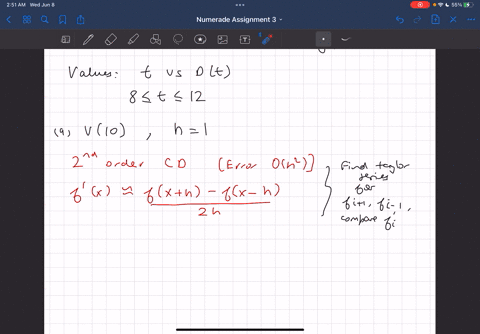 2:51 AM Wed Jun 8
55%
Numerade Assignment 3
Values: t vs D(t)
8 ≤ t ≤ 12
(a) V(10) , h = 1
2nd order CD [Error O(h²)]
f'(x) ≈ f(x+h) - f(x-h)
2h
Find taylor
series
for
fi+1, fi-1,
compare fi'